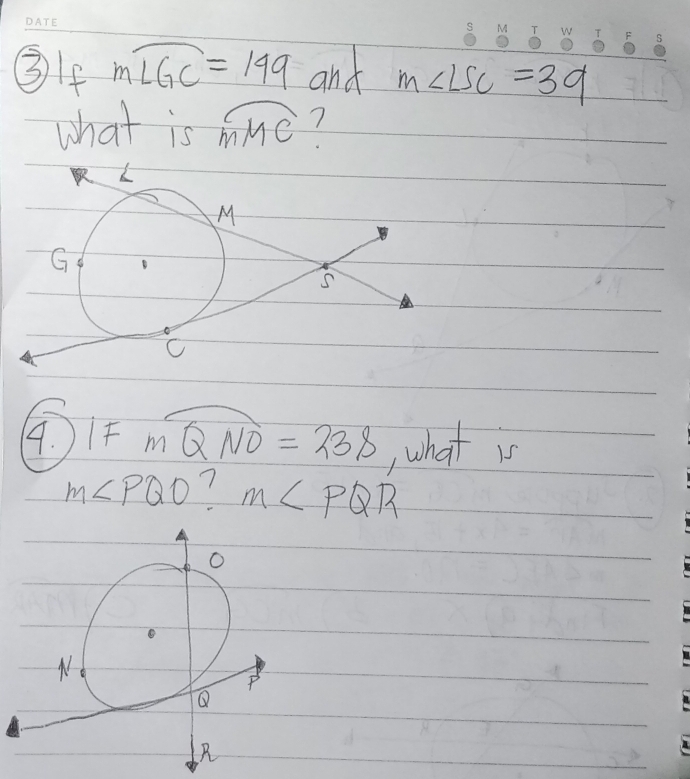 DATE
S M T W T F S
③ If mLGC = 199 and m∠LSC = 39
what is mMC?
L
M
G
S
C
4. IF mQNO = 238, what is
m∠PQO? m∠PQR
O
N
P
Q
R